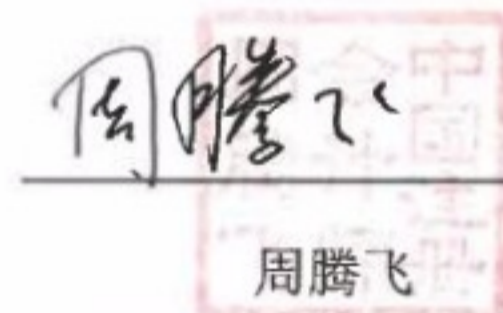 周腾飞
周腾飞